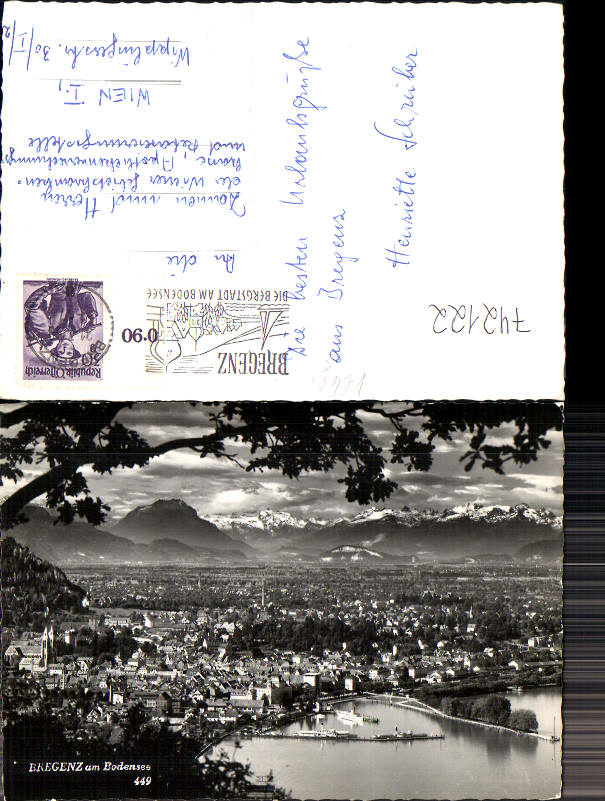 Die besten Urlaubsgrüße
aus Bregenz
Henriette Schreiber
An die
Damen und Herren
der Wiener Gebietskranken-
kasse, Apothekenverrechnungs-
und Retaxierungsstelle
WIEN I.,
Wipplingerstr. 30/I/2
Republik Österreich
BREGENZ
DIE BERGSTADT AM BODENSEE
0.90
742122
BREGENZ am Bodensee
449